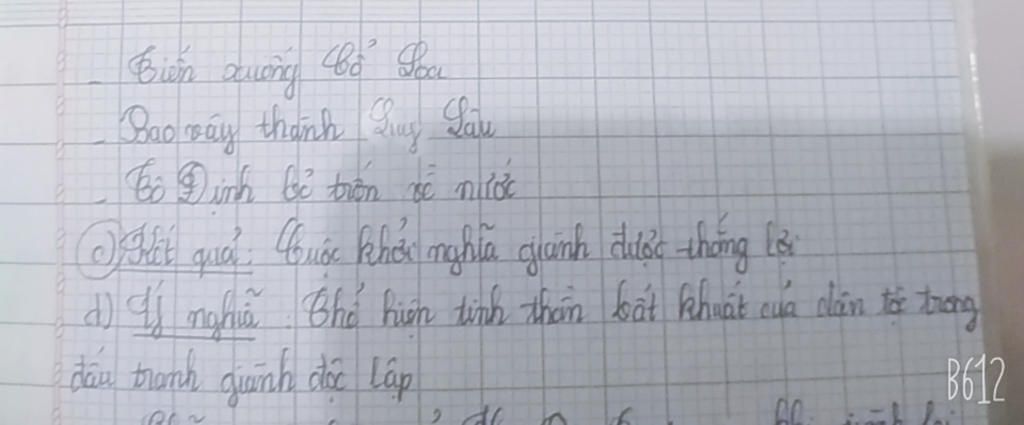 - Tiến xuống Cổ Loa
- Bao vây thành Luy Lâu
- Tô Định bỏ trốn về nước
c) Kết quả: Cuộc khởi nghĩa giành được thắng lợi
d) Ý nghĩa: Thể hiện tinh thần bất khuất của dân tộc trong
đấu tranh giành độc lập
B612